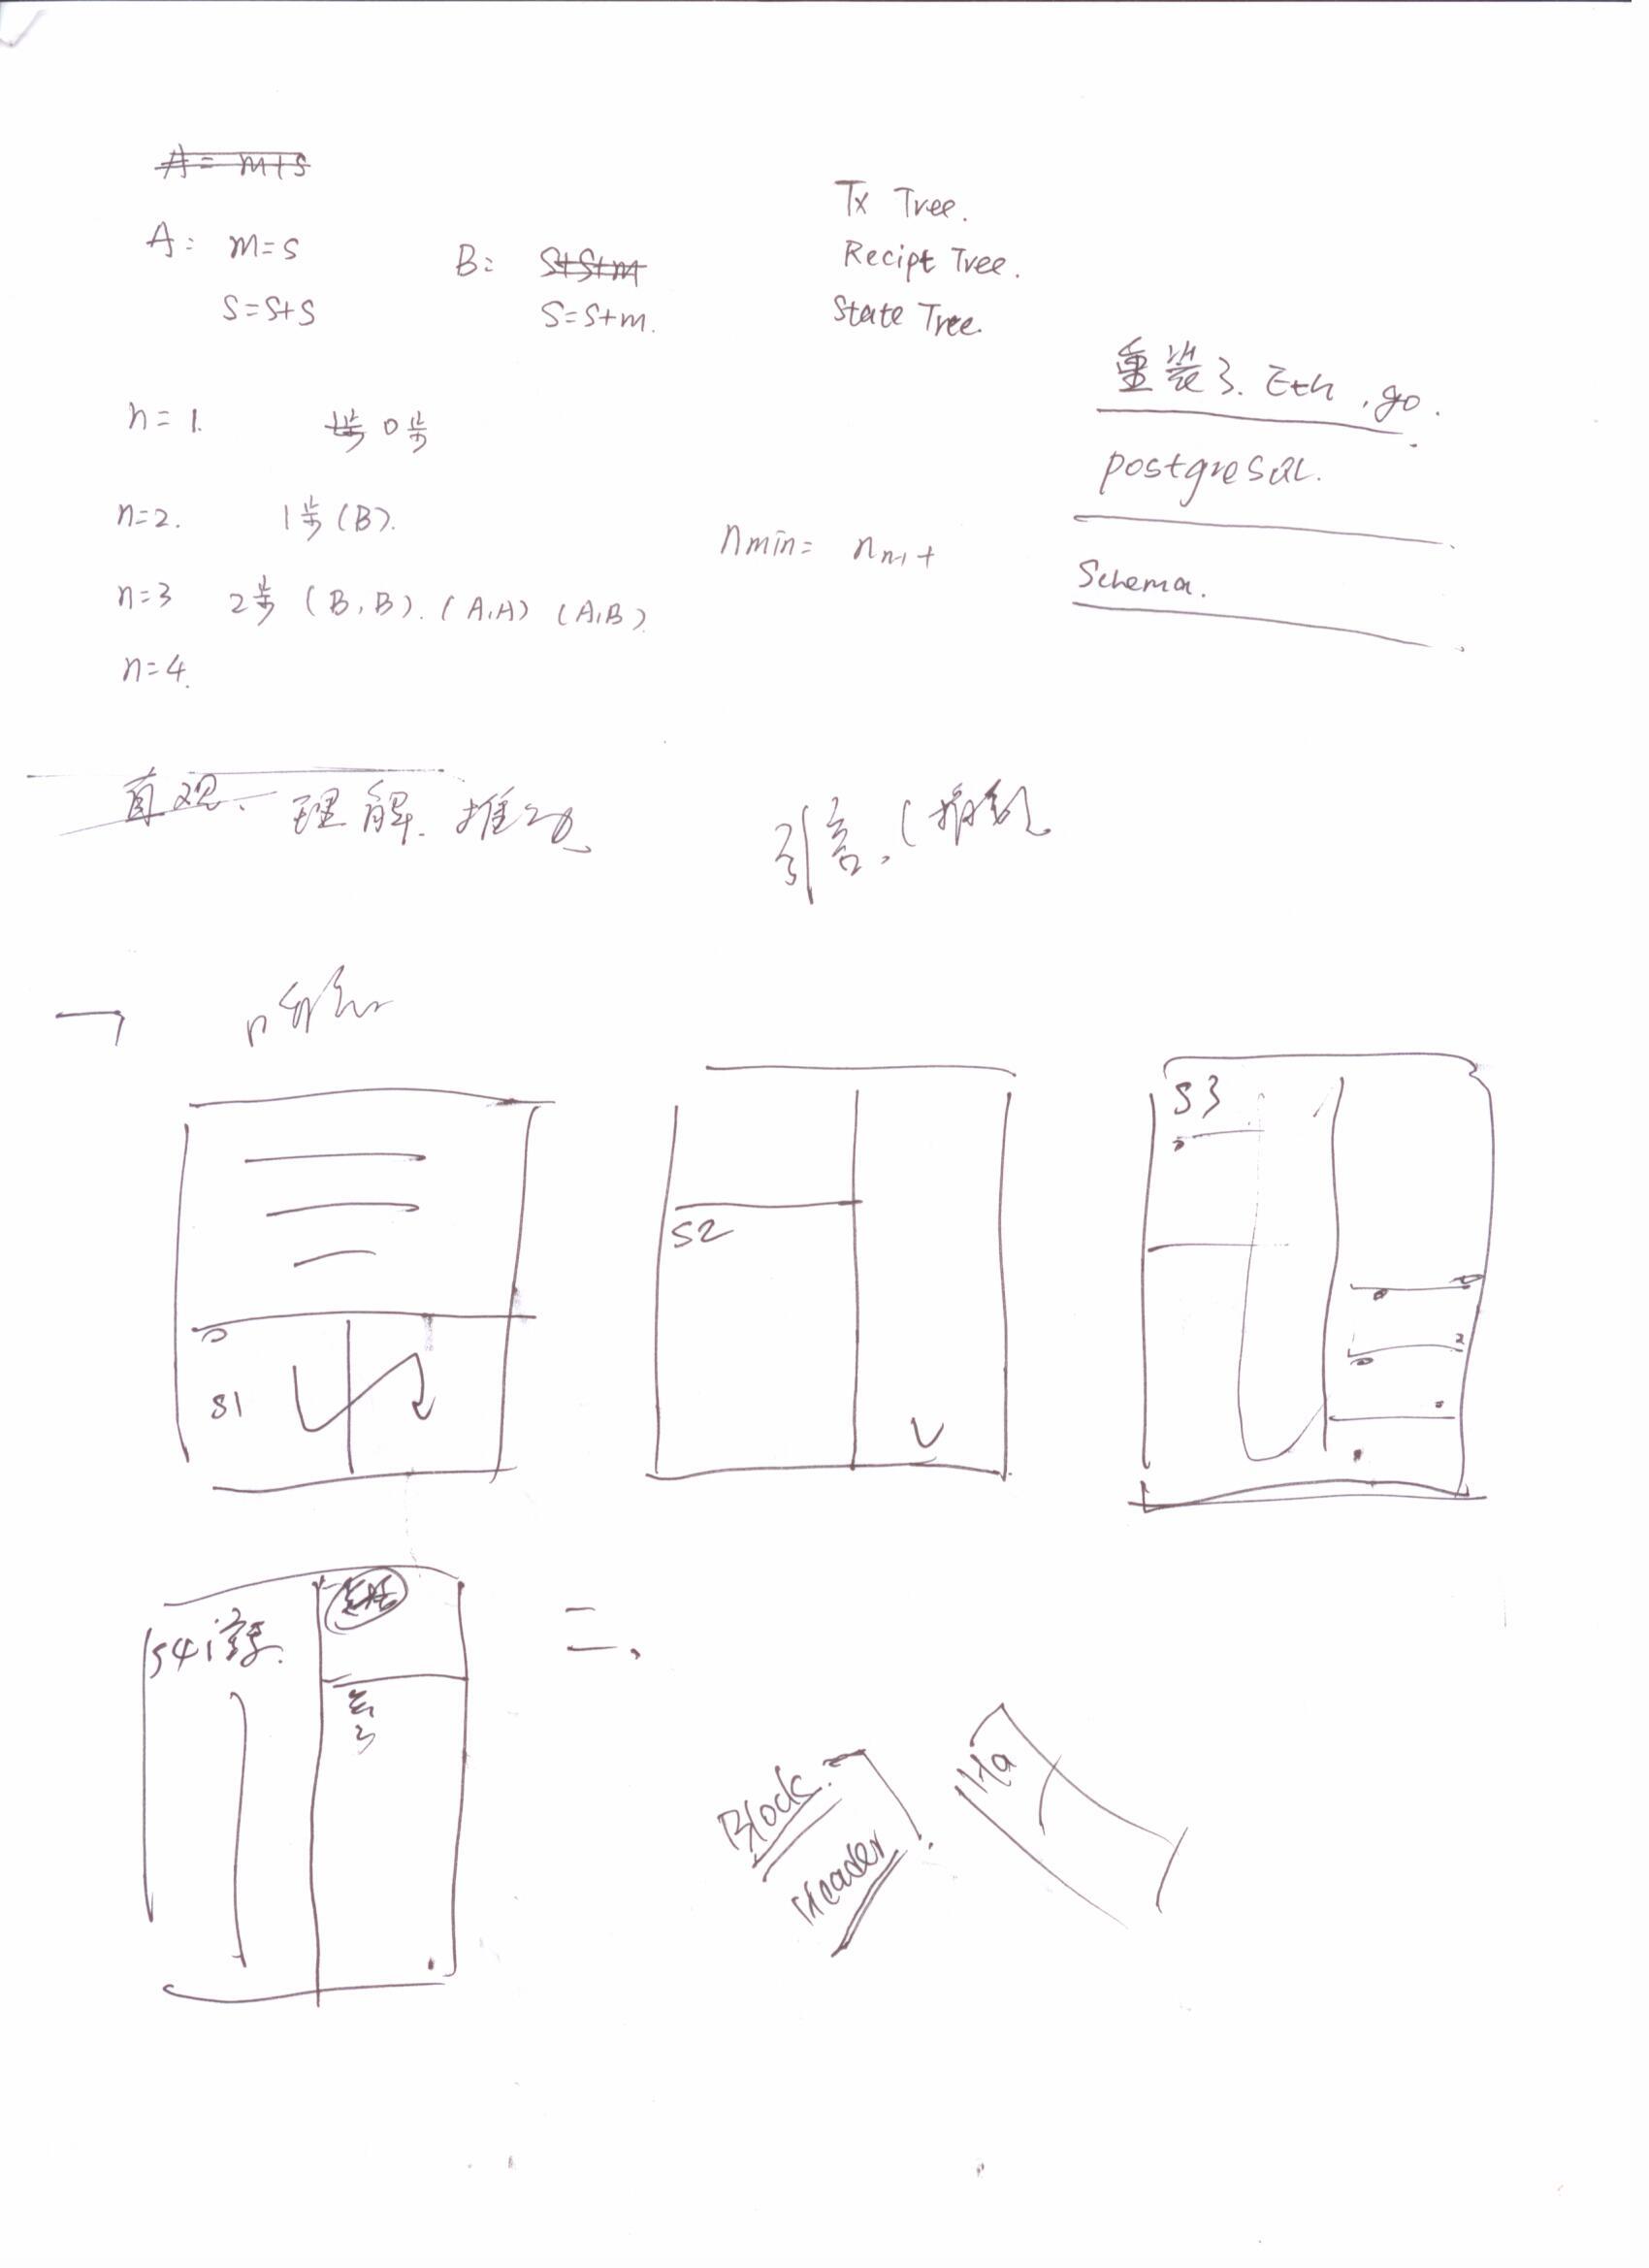 A = m+s
A: m=s
S=S+S
B: S+S+m
S=S+m.
Tx Tree.
Recipt Tree.
State Tree.
重装了. Eth, go.
postgreSQL.
Schema.
n=1. 1步 0步
n=2. 1步(B).
n=3 2步 (B,B). (A,A) (A,B)
n=4.
nmin= nn-1+
直观、理解. 推动
引言.
一
S1
S2
S3
S4
二、
Block
Header
Ha